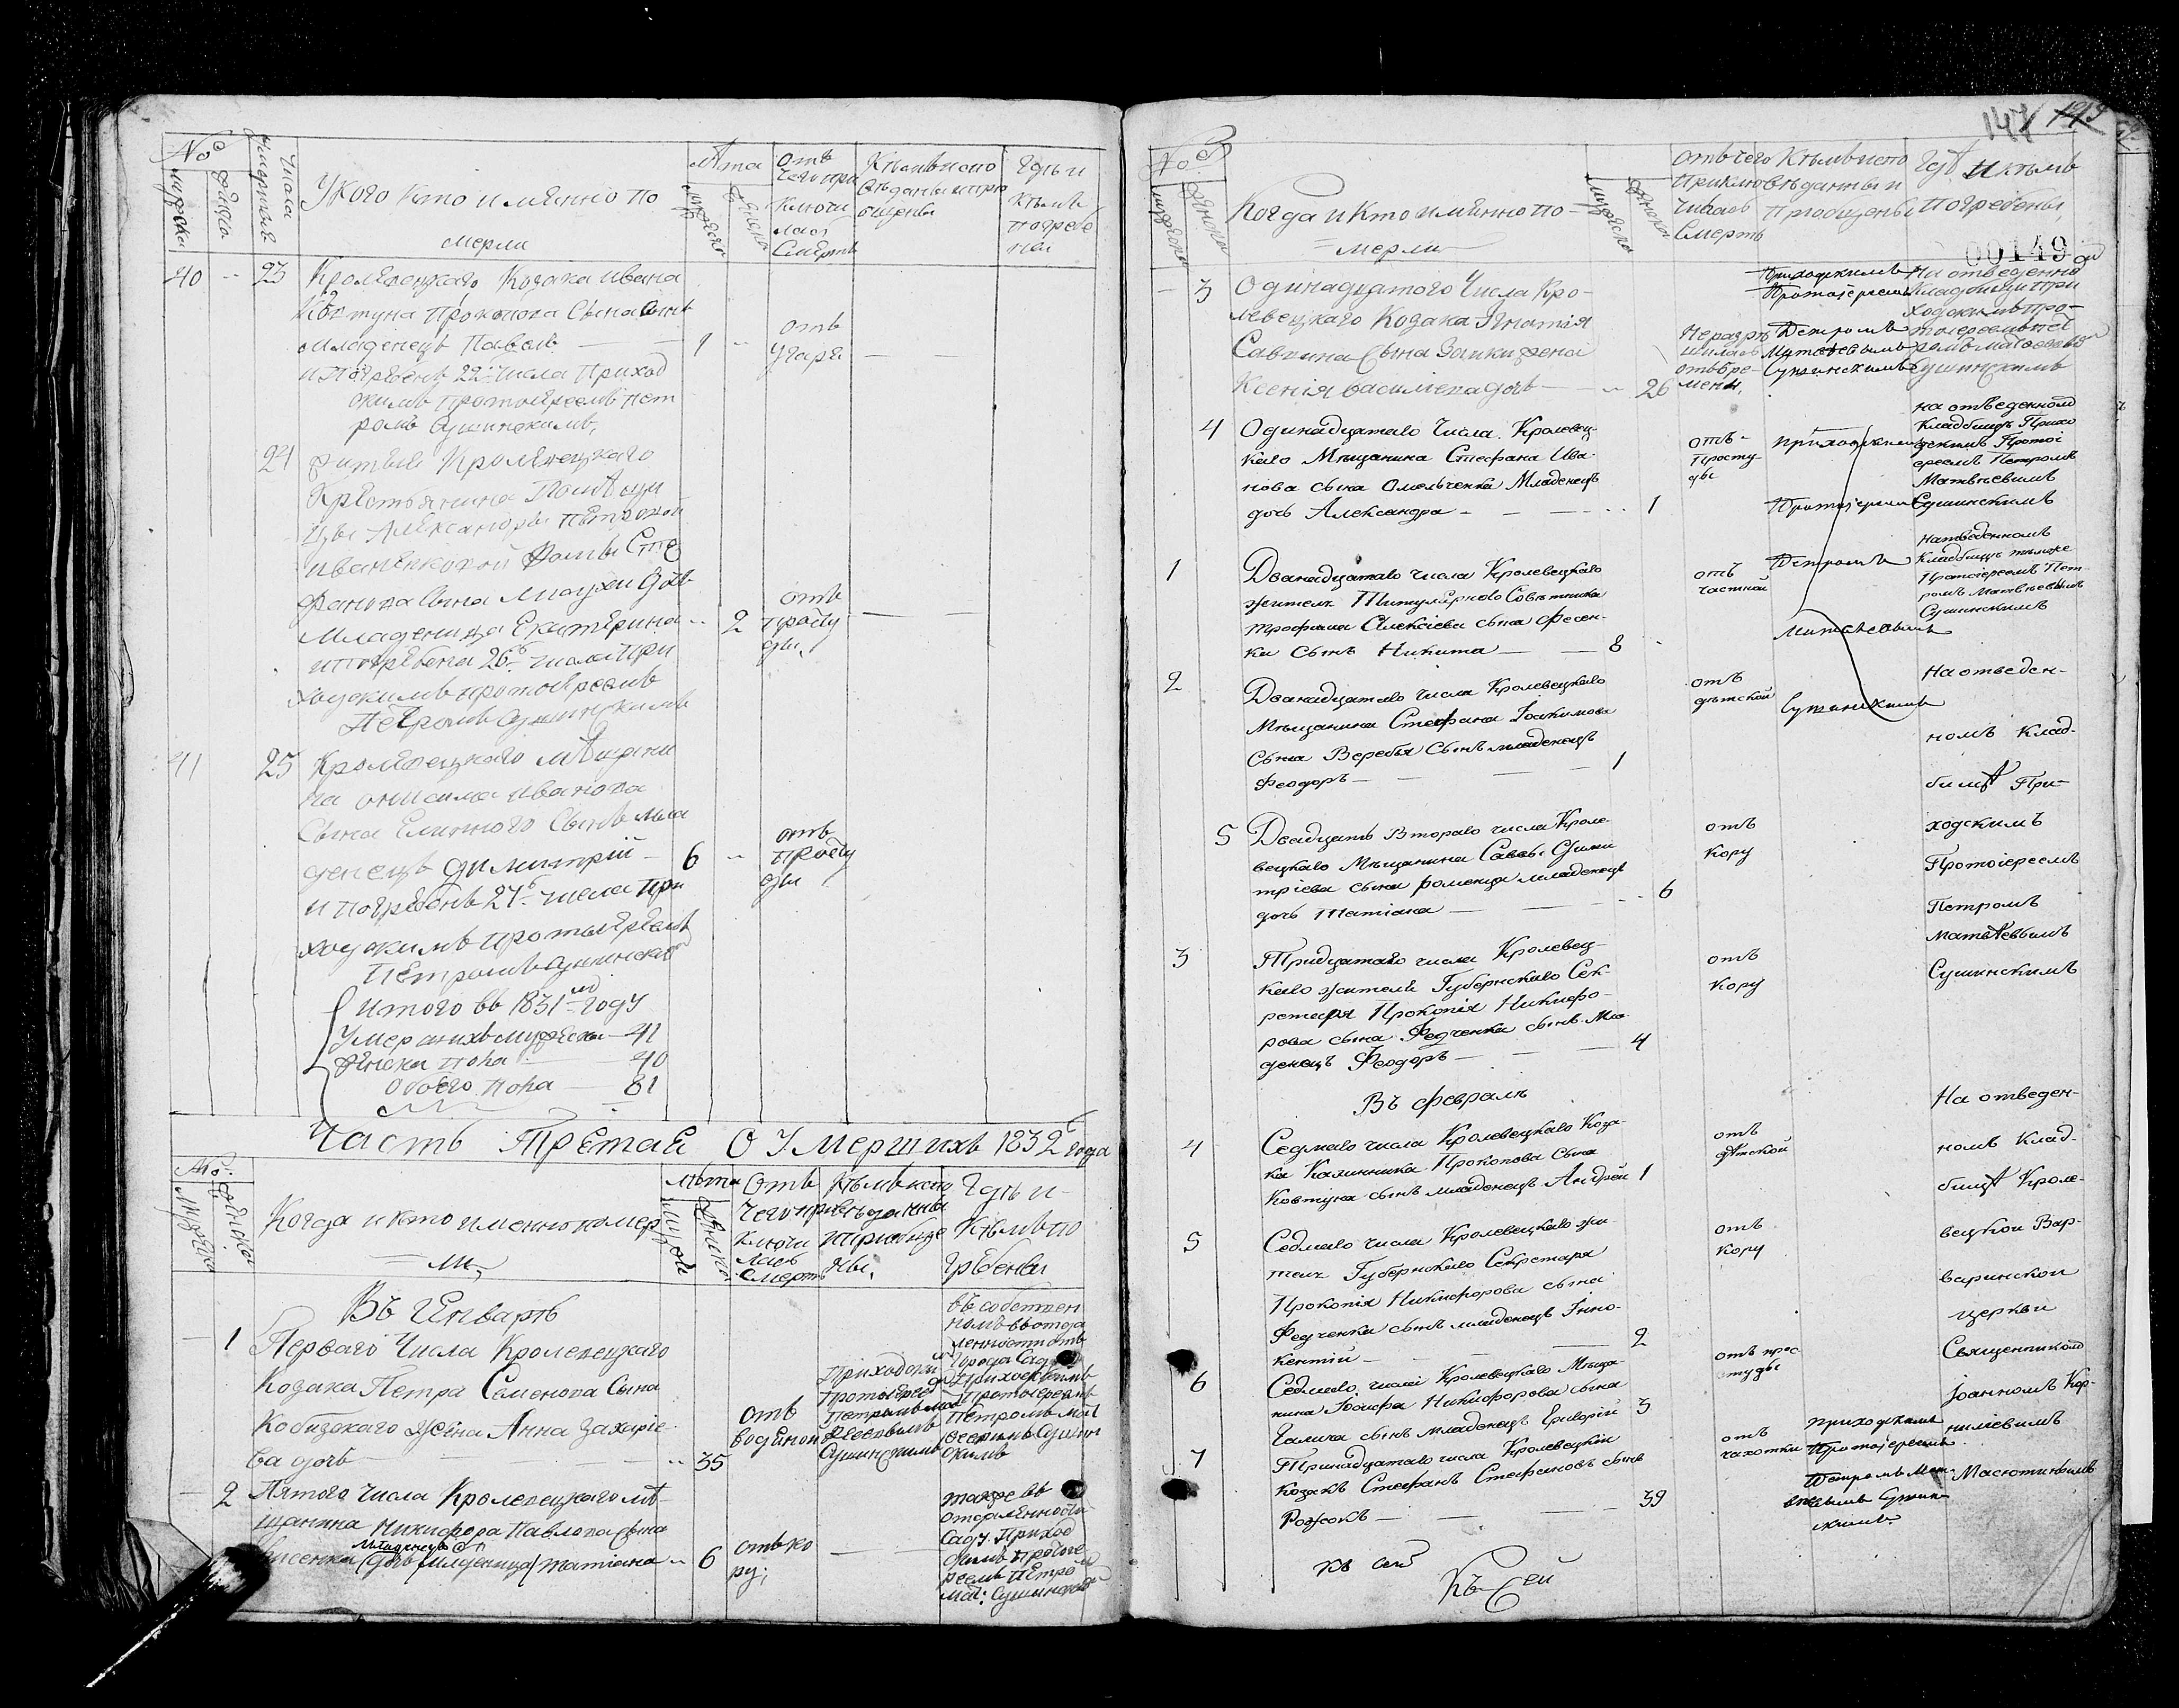 №
мужеска
женска
Числа
умертвія
У кого кто имянно по
мерли
Лѣта
мужеска
женска
отъ
чего при
ключи
лась
Смерть
Кѣмъ испо
вѣданы и прю
общены
Гдѣ и
кѣмъ
погребе
ны
40 - 23 Кролевецкаго Козака Ивана
Ковтуна Прокопова Сына Сынъ
младенецъ Павелъ 1 - отъ
угара
и погребенъ 22 числа Приход
скимъ Протоіереемъ Пет
ромъ Сушинскимъ,
24 Кролевецкаго
Крестьянина Помѣщи
цы Александры Петровой
Иваненковой Фомы Сте
фанова Сына дочь
младеница Екатерина - 2 отъ
просту
ды,
и погребена 26 числа При
ходскимъ протоіереемъ
Петромъ Сушинскимъ
41 25 Кролевецкаго мѣщани
на Онисима Иванова
Сына Сынъ мла
денецъ Димитрій - 6 - отъ
просту
ды
и погребенъ 27 числа При
ходскимъ протоіереемъ
Петромъ Сушинскимъ
Итого въ 1831 году
Умершихъ мужеска 41
женска пола 40
обоего пола 81
Часть Третая О Умершихъ 1832 года
№
мужеска
женска
Когда и кто именно помер
ли,
лѣта
женска
Отъ
чего при
ключи
лась
Смерть
Кѣмъ испо
вѣданы
и приобще
ны,
Гдѣ и
Кѣмъ по
гребены
Въ Генварѣ
- 1 Перваго Числа Кролевецкаго
Козака Петра Семенова Сына
Кобизскаго жена Анна Захаріе
ва дочь - 35
отъ
водяной
Приходским
Протоіерее
Петромъ Мат
ѳеевымъ
Сушинскимъ
въ собствен
номъ въ отда
ленности отъ
города Саду
Приходскимъ
Протоіереемъ
Петромъ Мат
ѳеевымъ Сушин
скимъ
- 2 Пятого Числа Кролевецкаго мѣ
щанина Никифора Павлова сына
дочь младеница Татіана - 6
отъ ко
ру;
такъже въ
отдаленности
Саду Приход
скимъ Протоіе
реемъ Петро
Мат: Сушинским
147
00149
№
мужеска
женска
Когда и кто имянно по-
мерли
мужеска
женска
отъ чего
приклю
чилась
Смерть
Кѣмъ испо
вѣданны и
Пріобщены
Гдѣ и кѣмъ
Погребены,
- 3 Одинадцатого Числа Кро-
левецкаго Козака Игнатія
Саввина Сына жена
Ксенія Василіева дочь - 26
Неразрѣ
шилась
отъ бре-
мени,
Приходскимъ
Протоіереемъ
Петромъ
Матѳеевымъ
Сушинскимъ
На отведенно
Кладбищи При
ходскимъ про-
тоіереемъ Пет
ромъ Матѳеевым
Сушинскимъ
4 Одинадцатаго Числа Кролевец-
каго Мѣщанина Стефана Ива-
нова сына Омельченка Младенецъ
дочь Александра - 1
отъ
Просту-
ды
приходскимъ
Протоіереем
на отведенномъ
Кладбищѣ Прихо
дскимъ Протоі
ереемъ Петромъ
Матвѣевимъ
Сушинскимъ
1 Дванадцатаго числа Кролевецкаго
жителя Титулярного Совѣтника
Трофима Алексіева сына Фесен-
ка Сынъ Никита 8
отъ
частной
Петромъ
Матѳеевымъ
на отведенномъ
Кладбищѣ тѣмже
Протоіереемъ Пет-
ромъ Матвѣевимъ
Сушинскимъ
2 Дванадцатаго числа Кролевецкаго
Мѣщанина Стефана Іоакимова
Сына Веребья Сынъ младенецъ
Феодоръ 1
отъ
дѣтской
Сушинскимъ
На отведен-
номъ Клад-
бищѣ При-
ходскимъ
Протоіереемъ
Петромъ
Матѳѣевымъ
Сушинскимъ
5 Двадцать Втораго числа Кроле-
вецкаго Мѣщанина Саввы Дими
тріева сына Роменца младенецъ
дочь Татіана 6
отъ
кору
3 Тридцатаго числа Кролевец-
каго жителя Губернскаго Сек-
ретаря Прокопія Никифо-
рова сына Федченка сынъ Мла-
денецъ Феодоръ 4
отъ
кору
Въ февралѣ
4 Седмаго числа Кролевецкаго Коза-
ка Калинника Прокопова Сына
Ковтуна сынъ младенецъ Андрей 1
отъ
дѣтской
На отведен-
номъ Клад-
бищѣ Кроле-
вецкой Вар-
варинской
церкви
Священникомъ
Іоанномъ Кор-
ниліевимъ
Масютинымъ
5 Седмаго числа Кролевецкаго жи-
теля Губернскаго Секретаря
Прокопія Никифорова сына
Федченка сынъ младенецъ Інно-
кентій 2
отъ
кору
6 Седмаго числа Кролевецкаго Мѣща-
нина Іосифа Никифорова сына
Галича сынъ младенецъ Григорій 3
отъ прос
туды
7 Тринадцатаго числа Кролевецкій
козакъ Стефанъ Стефановъ сынъ
Рожокъ 39
отъ
чахотки
приходскимъ
Протоіереемъ
Петромъ Мат-
вѣевымъ Сушин
скимъ
къ сей
Къ Сей